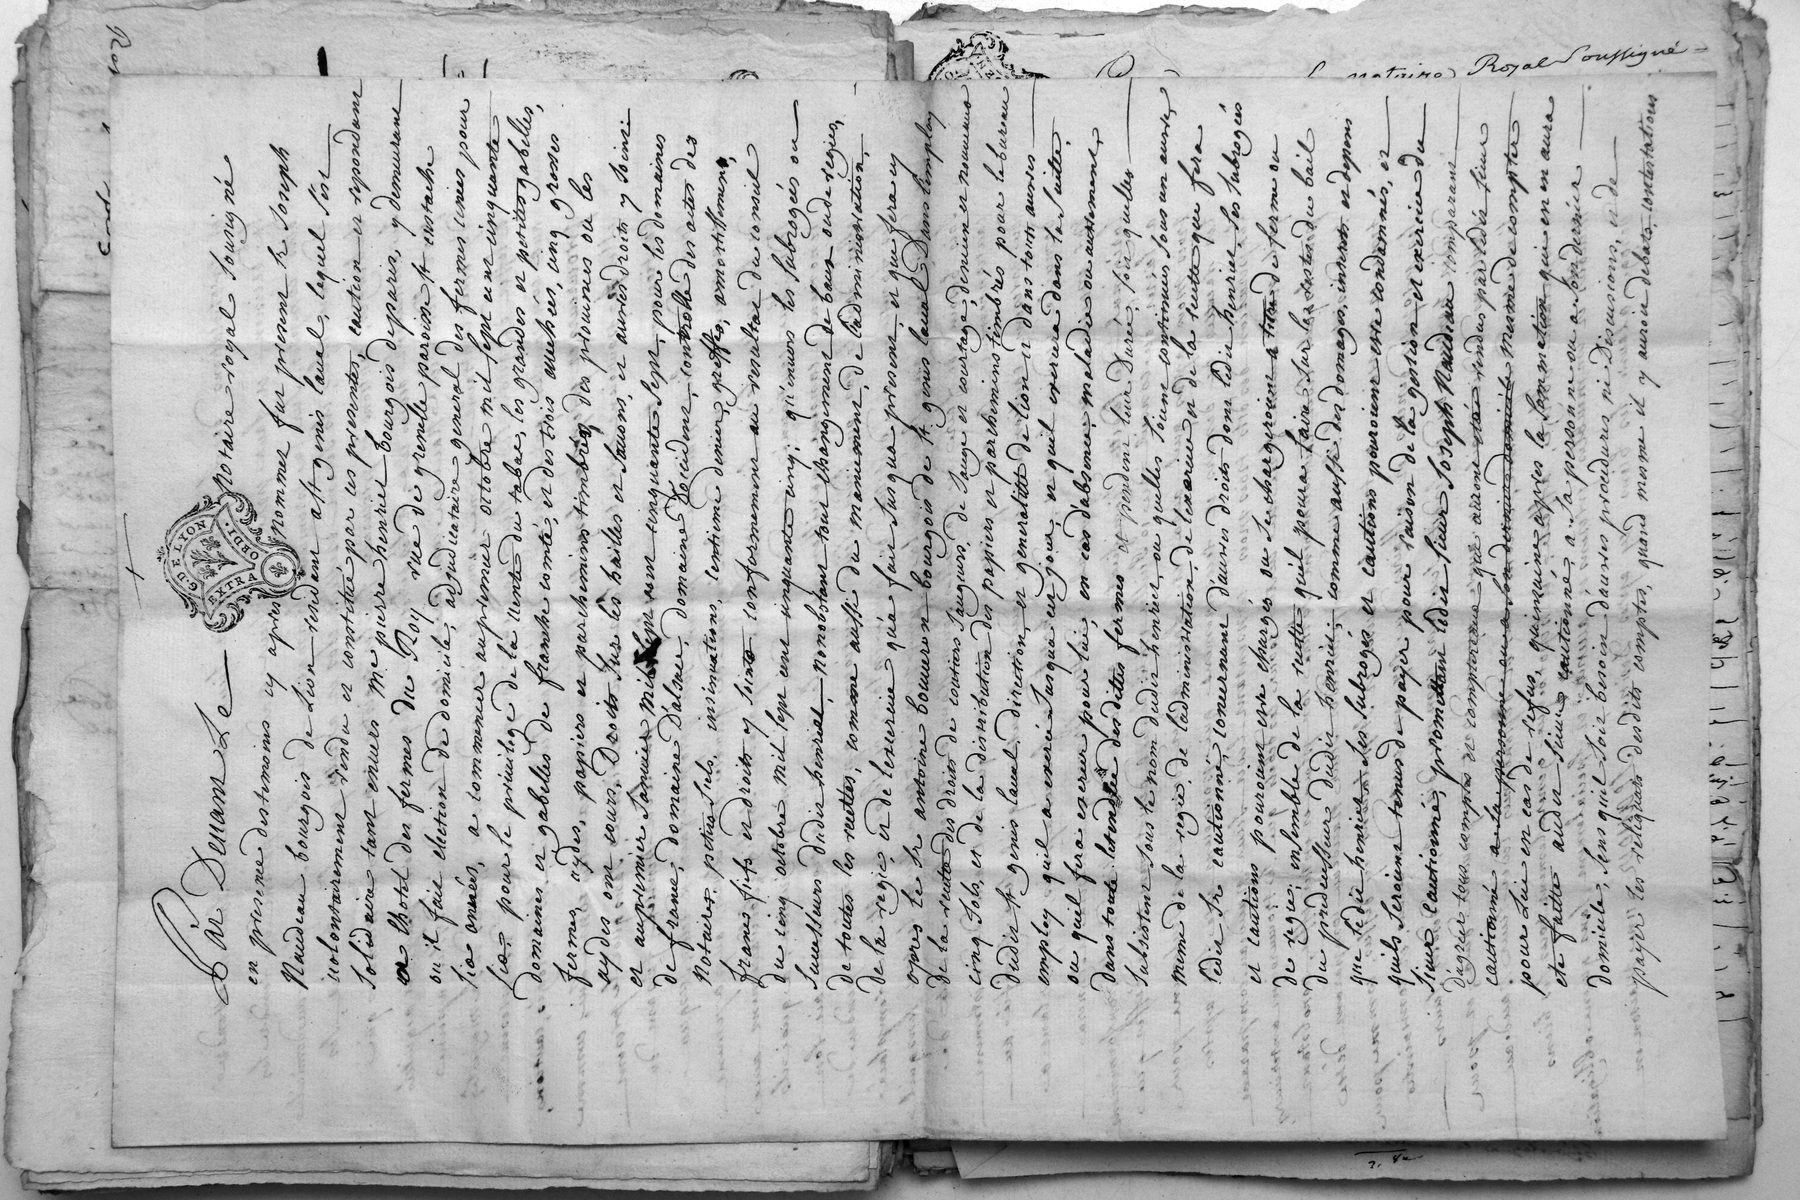 Par Devant Le Notaire royal souzigné
G. DE LYON
EXTRA ORDI.
en presence des temoins cy apres Nommez fut present sr Joseph
Naudeau bourgois de Lion residant a st genis laval, lequel s'est
volontairement rendu et constitué par ces presentes, caution et repondant
solidaire tant envers me pierre henriet bourgois de paris, y demeurant
a l'hotel des fermes du Roy rue de grenelle paroisse st eustache
ou il fait election de domicile, adjudicataire general des fermes unies pour
six années, a commencer au premier octobre mil sept cent cinquante
six pour le privilege de la vente du tabac, les grandes et petites gabelles,
domaines et gabelles de franche comté, et des trois evechés, cinq grosses
fermes, aydes, papiers et parchemins timbrés des provinces ou les
aydes ont cours, Droits sur les huilles et savons, et autres droits y joints
et au premier Janvier mil sept cent cinquante sept, pour les domaines
de france, domaine d'alsace, domaine d'occident, controlle des actes des
Notaires, petits sels, insinuations, centieme denier, greffes, amortissement,
francs fiefs et droits y joints conformement au resultat du conseil
du cinq octobre mil sept cent cinquante cinq; qu'envers les subrogés ou
successeurs dudit henriet, nonobstant tout changement de baux ou de regies,
de toutes les recettes, comme aussi du maniement, de l'administration,
de la regie et de l'exercice qu'a fait jusqu'a present, et que fera cy
apres le sr antoine bouvron bourgois de st genis laval Dans l'employ
de la recette des droits de courtiers Jaugeurs, de Jauge et courtage, ancien et nouveaux
cinq sols, et de la distribution des papiers et parchemins timbrés pour le bureau
dudit st genis laval, direction et generalité de Lion et dans tous autres
employ qu'il a exercé Jusqu'a ce jour, et qu'il exercera dans la suitte,
ou qu'il fera exercer pour lui, en cas d'absence, maladie ou autrement,
dans toute l'etendue desdites fermes et pendent leur Durée, soit qu'elles
subsistent sous le nom dudit henriet, ou qu'elles soient continuées sous un autre,
meme de la regie, de l'administration, de l'exercice et de la recette que fera
ledit sr cautionné, concernant d'autres droits dont ledit henriet, ses subrogés
et cautions pouroient etre chargés ou se chargeroient a titre de ferme ou
de regie; ensemble de la recette qu'il poura faire sur les restes du bail
du predecesseur dudit henriet; comme aussi des domages, interets et depens
que ledit henriet ses subrogés et cautions pouroient etre condamnés, et
qu'ils seroient tenus de payer pour raison de la gestion et exercice du
sieur cautionné, promettant ledit sieur Joseph Naudeau comparant
d'agreer tous comptes et compteraux qui auront etés rendus par ledit sieur
cautionné a la personne ou a son dernier domicile meme de compter
pour luy en cas de refus, quinzaine apres la sommation qui en aura
eté faitte audit sieur cautionné, a sa personne ou a son dernier
domicile, sens qu'il soit besoin d'autres procedures ni Discussions, et de
payer les reliquats desdits comptes, quand meme il y auroit debats, contestations
notaire Royal soussigné